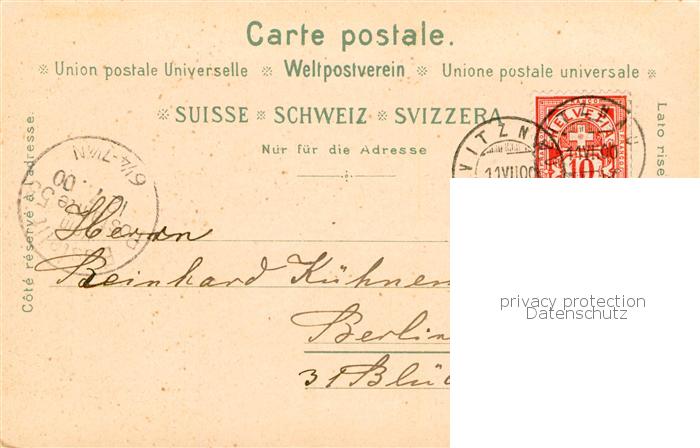 Carte postale.
Union postale Universelle * Weltpostverein * Unione postale universale
SUISSE * SCHWEIZ * SVIZZERA
Nur für die Adresse
Côté réservé à l'adresse.
Lato rise
VITZN
11 VII 00
HELVETIA
FRANCO
10
6¼-7½N
00
Herrn
Reinhard Kühne
Berlin
31 Blü
privacy protection
Datenschutz